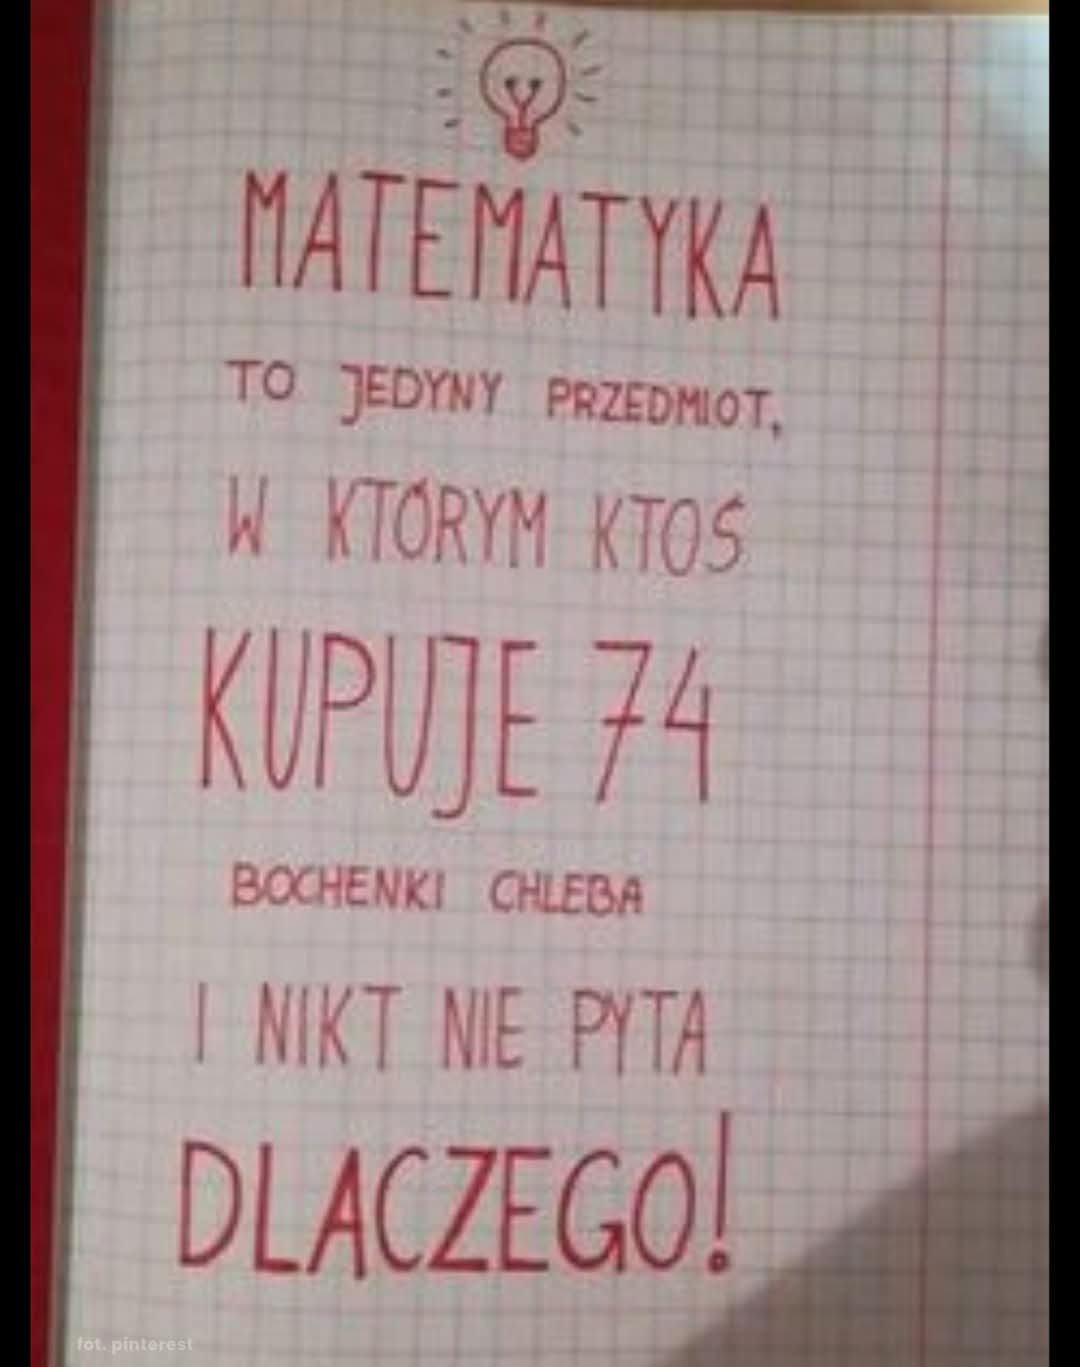 MATEMATYKA
TO JEDYNY PRZEDMIOT,
W KTÓRYM KTOŚ
KUPUJE 74
BOCHENKI CHLEBA
I NIKT NIE PYTA
DLACZEGO!
fot. pinterest